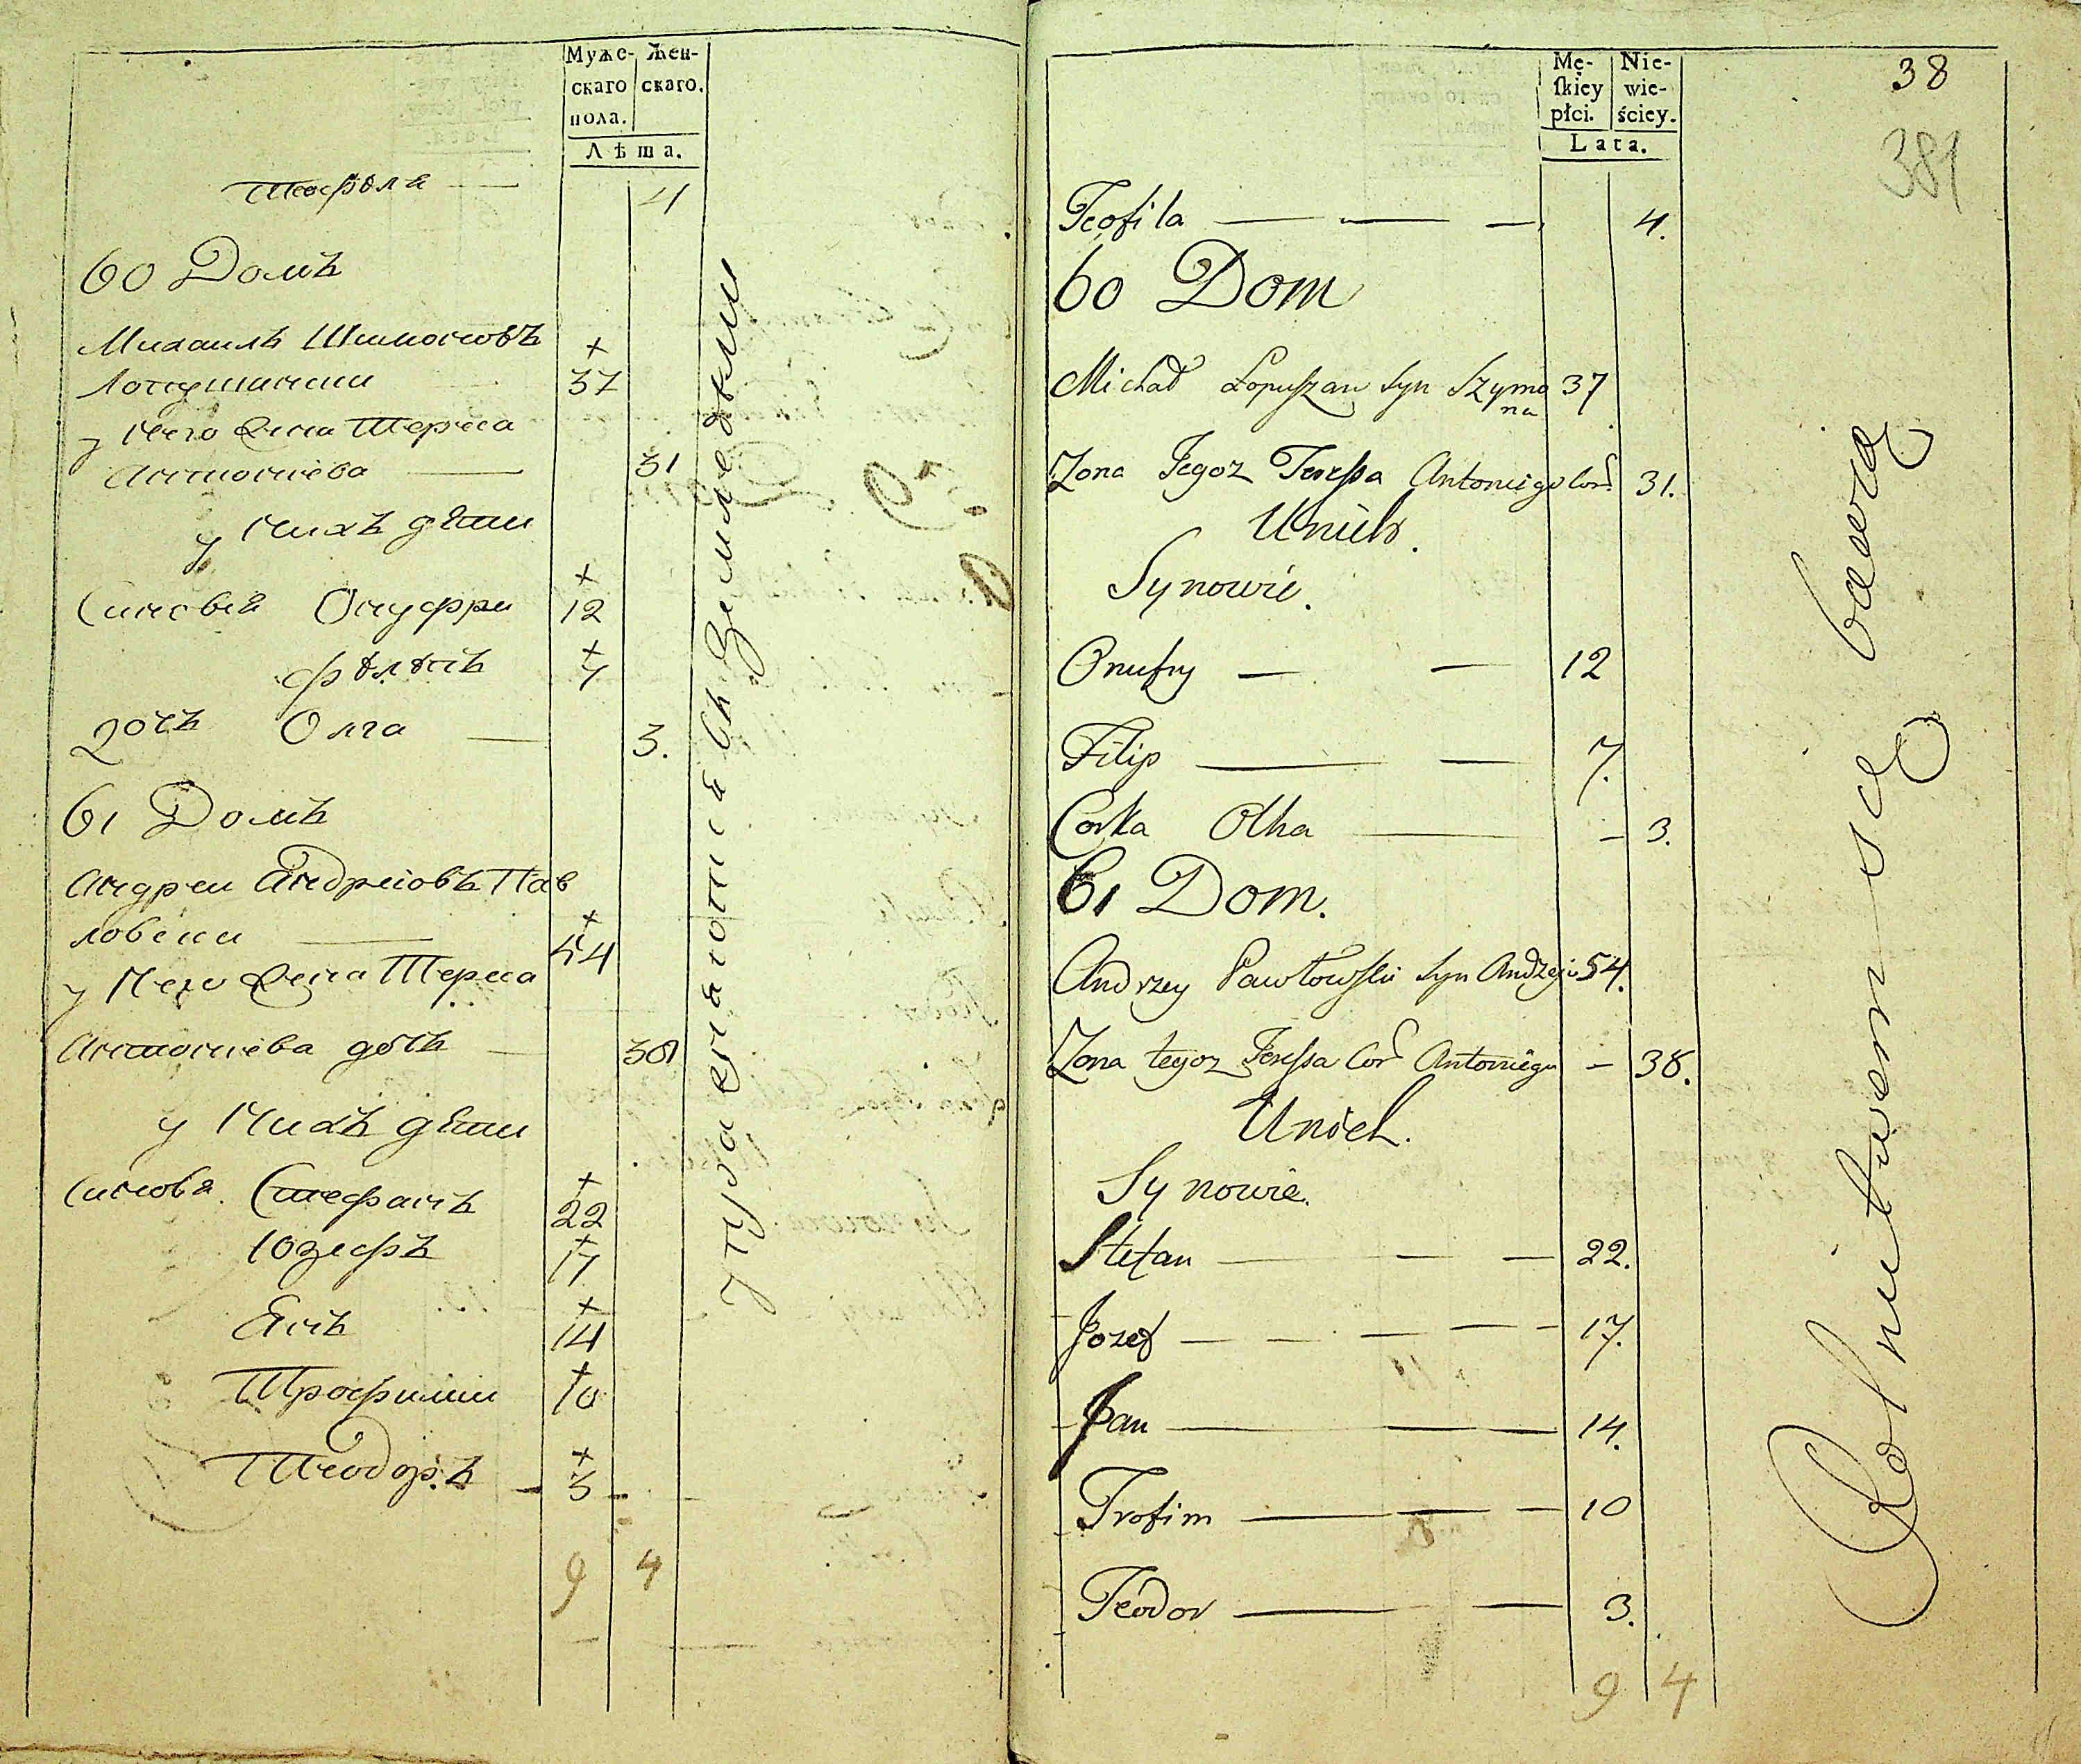 Муже- Жен-
скаго скаго.
пола.
Лѣта.
Теофѣла 4
60 Домъ
Михаилъ Шимоновъ +
Лопушински 37
у Него Жена Тереса
Антоніева 31
у Нихъ дѣти
+
Синовья Онуфри 12
+
Фѣлѣпъ 7
дочъ Олга 3.
61 Домъ
Андреи Андреіовъ Пав
ловски + 54
у Него Жена Тереса
Антоніева дочъ 38
у Нихъ дѣти
Синовя. Стефанъ + 22
Юзефъ + 17
Янъ + 14
Трофимии + 10
Теодоръ + 3
9 4
упражняются въ Земледелии
Mę- Nie-
skiey wie-
płci. ściey.
Lata.
38
381
Teofila 4.
60 Dom
Michał Łopuszan Syn Szymo 37
na
Zona Jegoz Teressa Antoniego Cor 31.
Unich.
Synowie.
Onufry 12
Filip 7.
Corka Olha – 3.
61 Dom.
Andrzey Pawłowski Syn Andrzeja 54.
Zona tegoz Teressa Cor Antoniego – 38.
Unich.
Synowie.
Stefan 22.
Jozef 17.
Jan 14.
Trofim 10
Teodor 3.
9 4
Rolnictwem się bawią